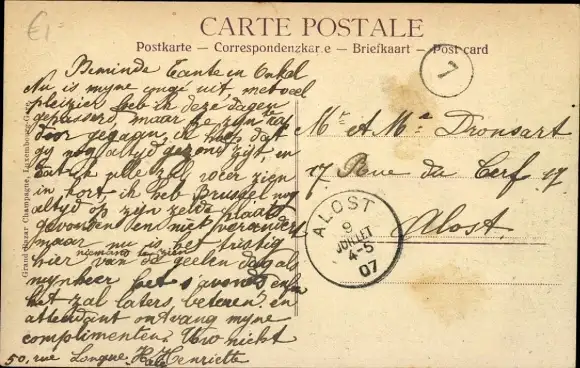 €1-
CARTE POSTALE
Postkarte – Correspondenzkarte – Briefkaart – Post card
7
Beminde Tante en Onkel
Nu is myne congé uit, met veel
pleizier heb ik deze dagen
gepasseerd, maar ze zyn
door gegaan, ik hoop dat
gy nog altyd gezond zyt, en
dat ik ulle zal weer zien
in kort, ik heb Brussel nog
altyd op zijn zelde plaats
gevonden en niet veranderd
maar nu is het tristig
hier niemand te zien van de geelen dag als
mynheer het s'avonds en
het zal laters, beteren. en
attendant ontvang myne
complimenten. Uw nicht
Henriette
50, rue Longue Haie
Mr et Ma Dronsart
17 Rue du Cerf 17
Alost.
ALOST
9
JUILLET
4-5
07
Grand Bazar Champagne, Luxembourg-Gare